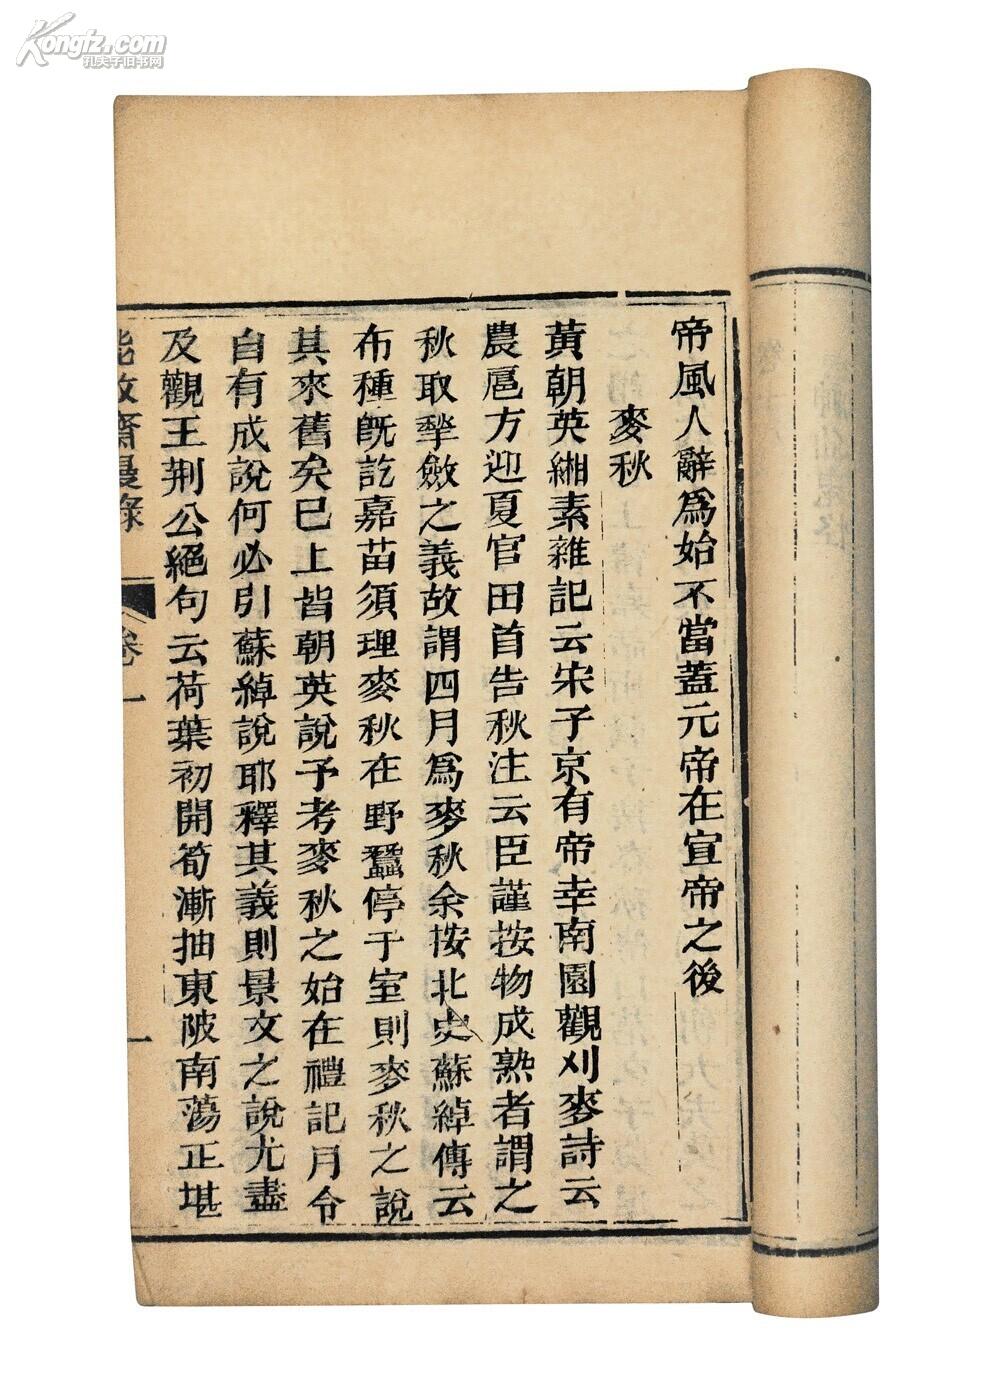 帝風人辭爲始不當蓋元帝在宣帝之後
麥秋
黃朝英緗素雜記云宋子京有帝幸南園觀刈麥詩云
農扈方迎夏官田首告秋注云臣謹按物成熟者謂之
秋取揫斂之義故謂四月爲麥秋余按北史蘇綽傳云
布種旣訖嘉苗須理麥秋在野蠶停于室則麥秋之說
其來舊矣已上皆朝英說予考麥秋之始在禮記月令
自有成說何必引蘇綽說耶釋其義則景文之說尤盡
及觀王荆公絕句云荷葉初開筍漸抽東陂南蕩正堪
能改齋漫錄
卷一
一
Kongfz.com
孔夫子旧书网